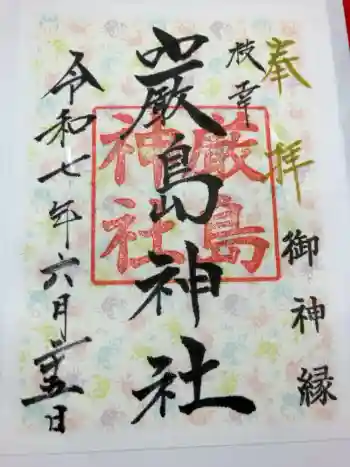 奉拝
枝幸
御神縁
巌島神社
厳島
神社
令和七年六月二十五日